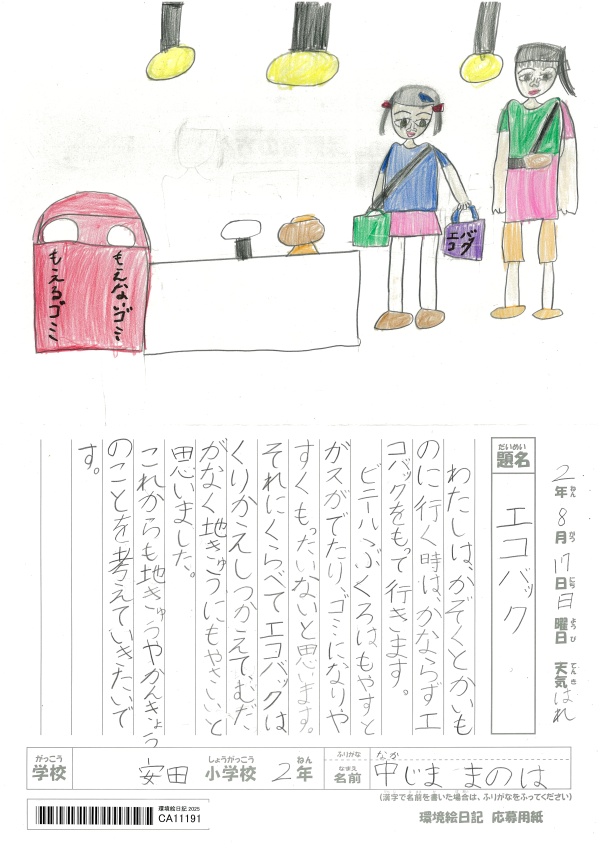 もえるゴミ
もえないゴミ
エコ
バグ
2年8月17日日曜日 天気はれ
ねん
がつ
にち
ようび
てんき
だいめい
題名
エコバック
わたしは、かぞくとかいも
のに行く時は、かならずエ
コバックをもって行きます。
ビニールぶくろはもやすと
ガスがでたり、ゴミになりや
すくもったいないと思います。
それにくらべてエコバックは
くりかえしつかえて、むだ
がなく地きゅうにもやさしいと
思いました。
これからも地きゅうやかんきょう
のことを考えていきたいで
す。
がっこう
学校
安田
しょうがっこう
小学校
2
ねん
年
ふりがな
なまえ
名前
なか
中じま まのは
(漢字で名前を書いた場合は、ふりがなをふってください)
環境絵日記 2025
CA11191
環境絵日記 応募用紙